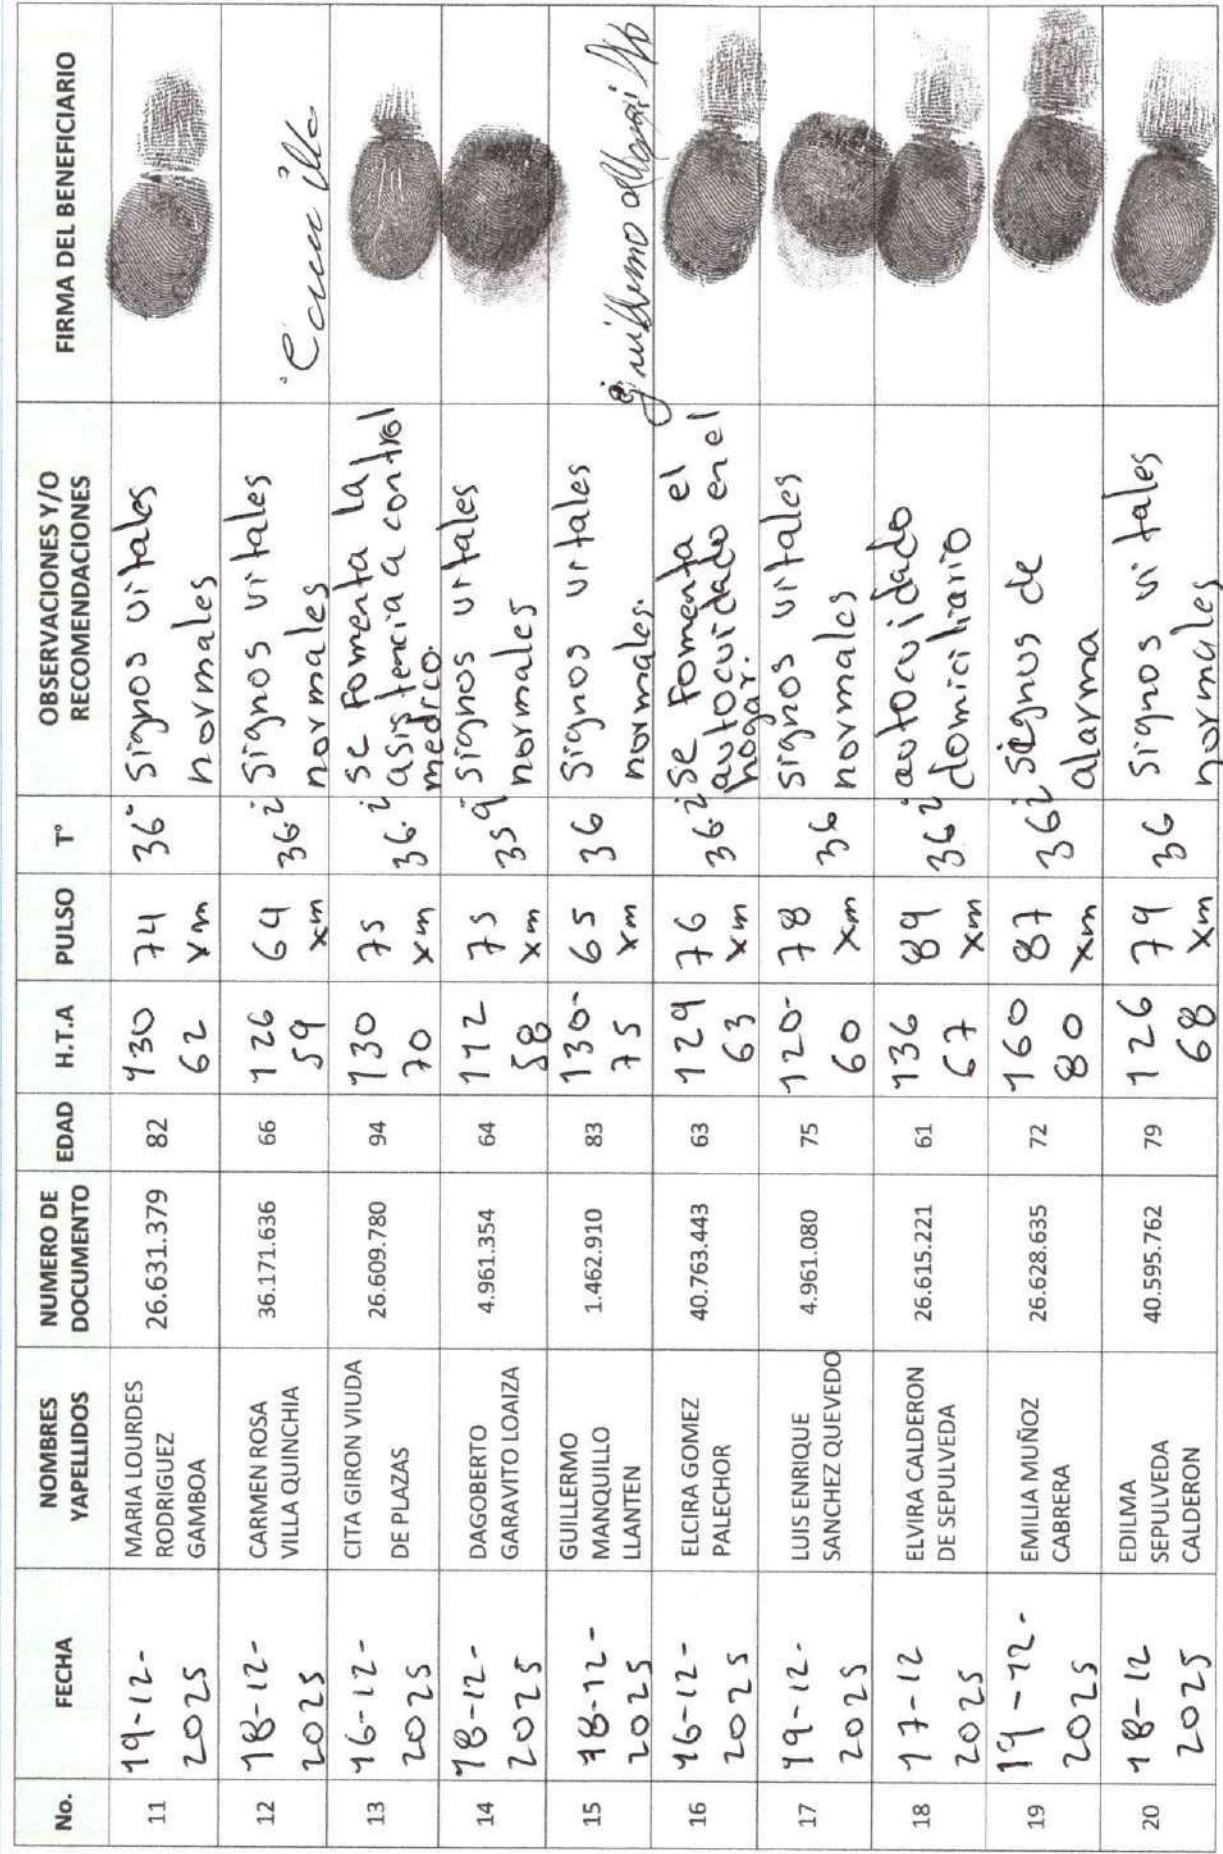 No.
FECHA
NOMBRES
YAPELLIDOS
NUMERO DE
DOCUMENTO
EDAD
H.T.A
PULSO
T°
OBSERVACIONES Y/O
RECOMENDACIONES
FIRMA DEL BENEFICIARIO
11
19-12-
2025
MARIA LOURDES
RODRIGUEZ
GAMBOA
26.631.379
82
130
62
74
xm
36°
signos vitales
normales
12
18-12-
2025
CARMEN ROSA
VILLA QUINCHIA
36.171.636
66
126
59
64
xm
36.2
signos vitales
normales
13
16-12-
2025
CITA GIRON VIUDA
DE PLAZAS
26.609.780
94
130
70
75
xm
36.2
se fomenta la
asistencia a control
medico.
14
18-12-
2025
DAGOBERTO
GARAVITO LOAIZA
4.961.354
64
112
58
75
xm
35 9
signos vitales
normales
15
18-12-
2025
GUILLERMO
MANQUILLO
LLANTEN
1.462.910
83
130-
75
65
xm
36
signos vitales
normales.
16
16-12-
2025
ELCIRA GOMEZ
PALECHOR
40.763.443
63
129
63
76
xm
36.2
se fomenta el
autocuidado en el
hogar.
17
19-12-
2025
LUIS ENRIQUE
SANCHEZ QUEVEDO
4.961.080
75
120-
60
78
xm
36
signos vitales
normales
18
17-12
2025
ELVIRA CALDERON
DE SEPULVEDA
26.615.221
61
136
67
89
xm
36 2
autocuidado
domiciliario
19
19-12-
2025
EMILIA MUÑOZ
CABRERA
26.628.635
72
160
80
87
xm
36 2
signos de
alarma
20
18-12
2025
EDILMA
SEPULVEDA
CALDERON
40.595.762
79
126
68
79
xm
36
signos vitales
normales